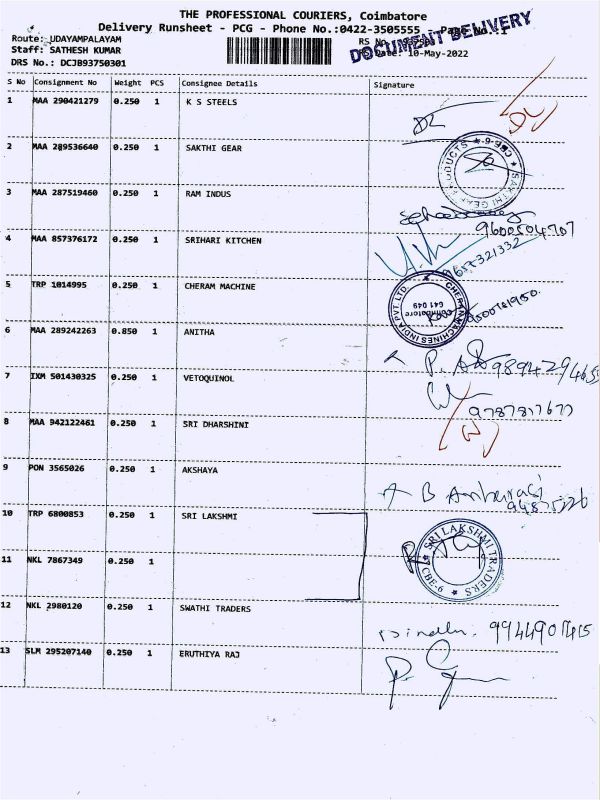 THE PROFESSIONAL COURIERS, Coimbatore
Delivery Runsheet - PCG - Phone No.:0422-3505555 - Page No. 1
DOCUMENT DELIVERY
Route: UDAYAMPALAYAM
RS No.
Staff: SATHESH KUMAR
Date: 10-May-2022
DRS No.: DCJB93750301
S No Consignment No Weight PCS Consignee Details Signature
1 MAA 290421279 0.250 1 K S STEELS
2 MAA 289536640 0.250 1 SAKTHI GEAR
SAKTHI GEAR PRODUCTS ★ CBE-6 ★
3 MAA 287519460 0.250 1 RAM INDUS
9600504707
4 MAA 857376172 0.250 1 SRIHARI KITCHEN
5 TRP 1014995 0.250 1 CHERAM MACHINE
CHERAN MACHINES INDIA PVT LTD.
Coimbatore
641 049
6 MAA 289242263 0.850 1 ANITHA
7 IXM 501430325 0.250 1 VETOQUINOL
9787817677
8 MAA 942122461 0.250 1 SRI DHARSHINI
9 PON 3565026 0.250 1 AKSHAYA
10 TRP 6800853 0.250 1 SRI LAKSHMI
SRI LAKSHMI TRADERS ★ CBE-6 ★
11 NKL 7867349 0.250 1
12 NKL 2980120 0.250 1 SWATHI TRADERS
13 SLM 295207140 0.250 1 ERUTHIYA RAJ